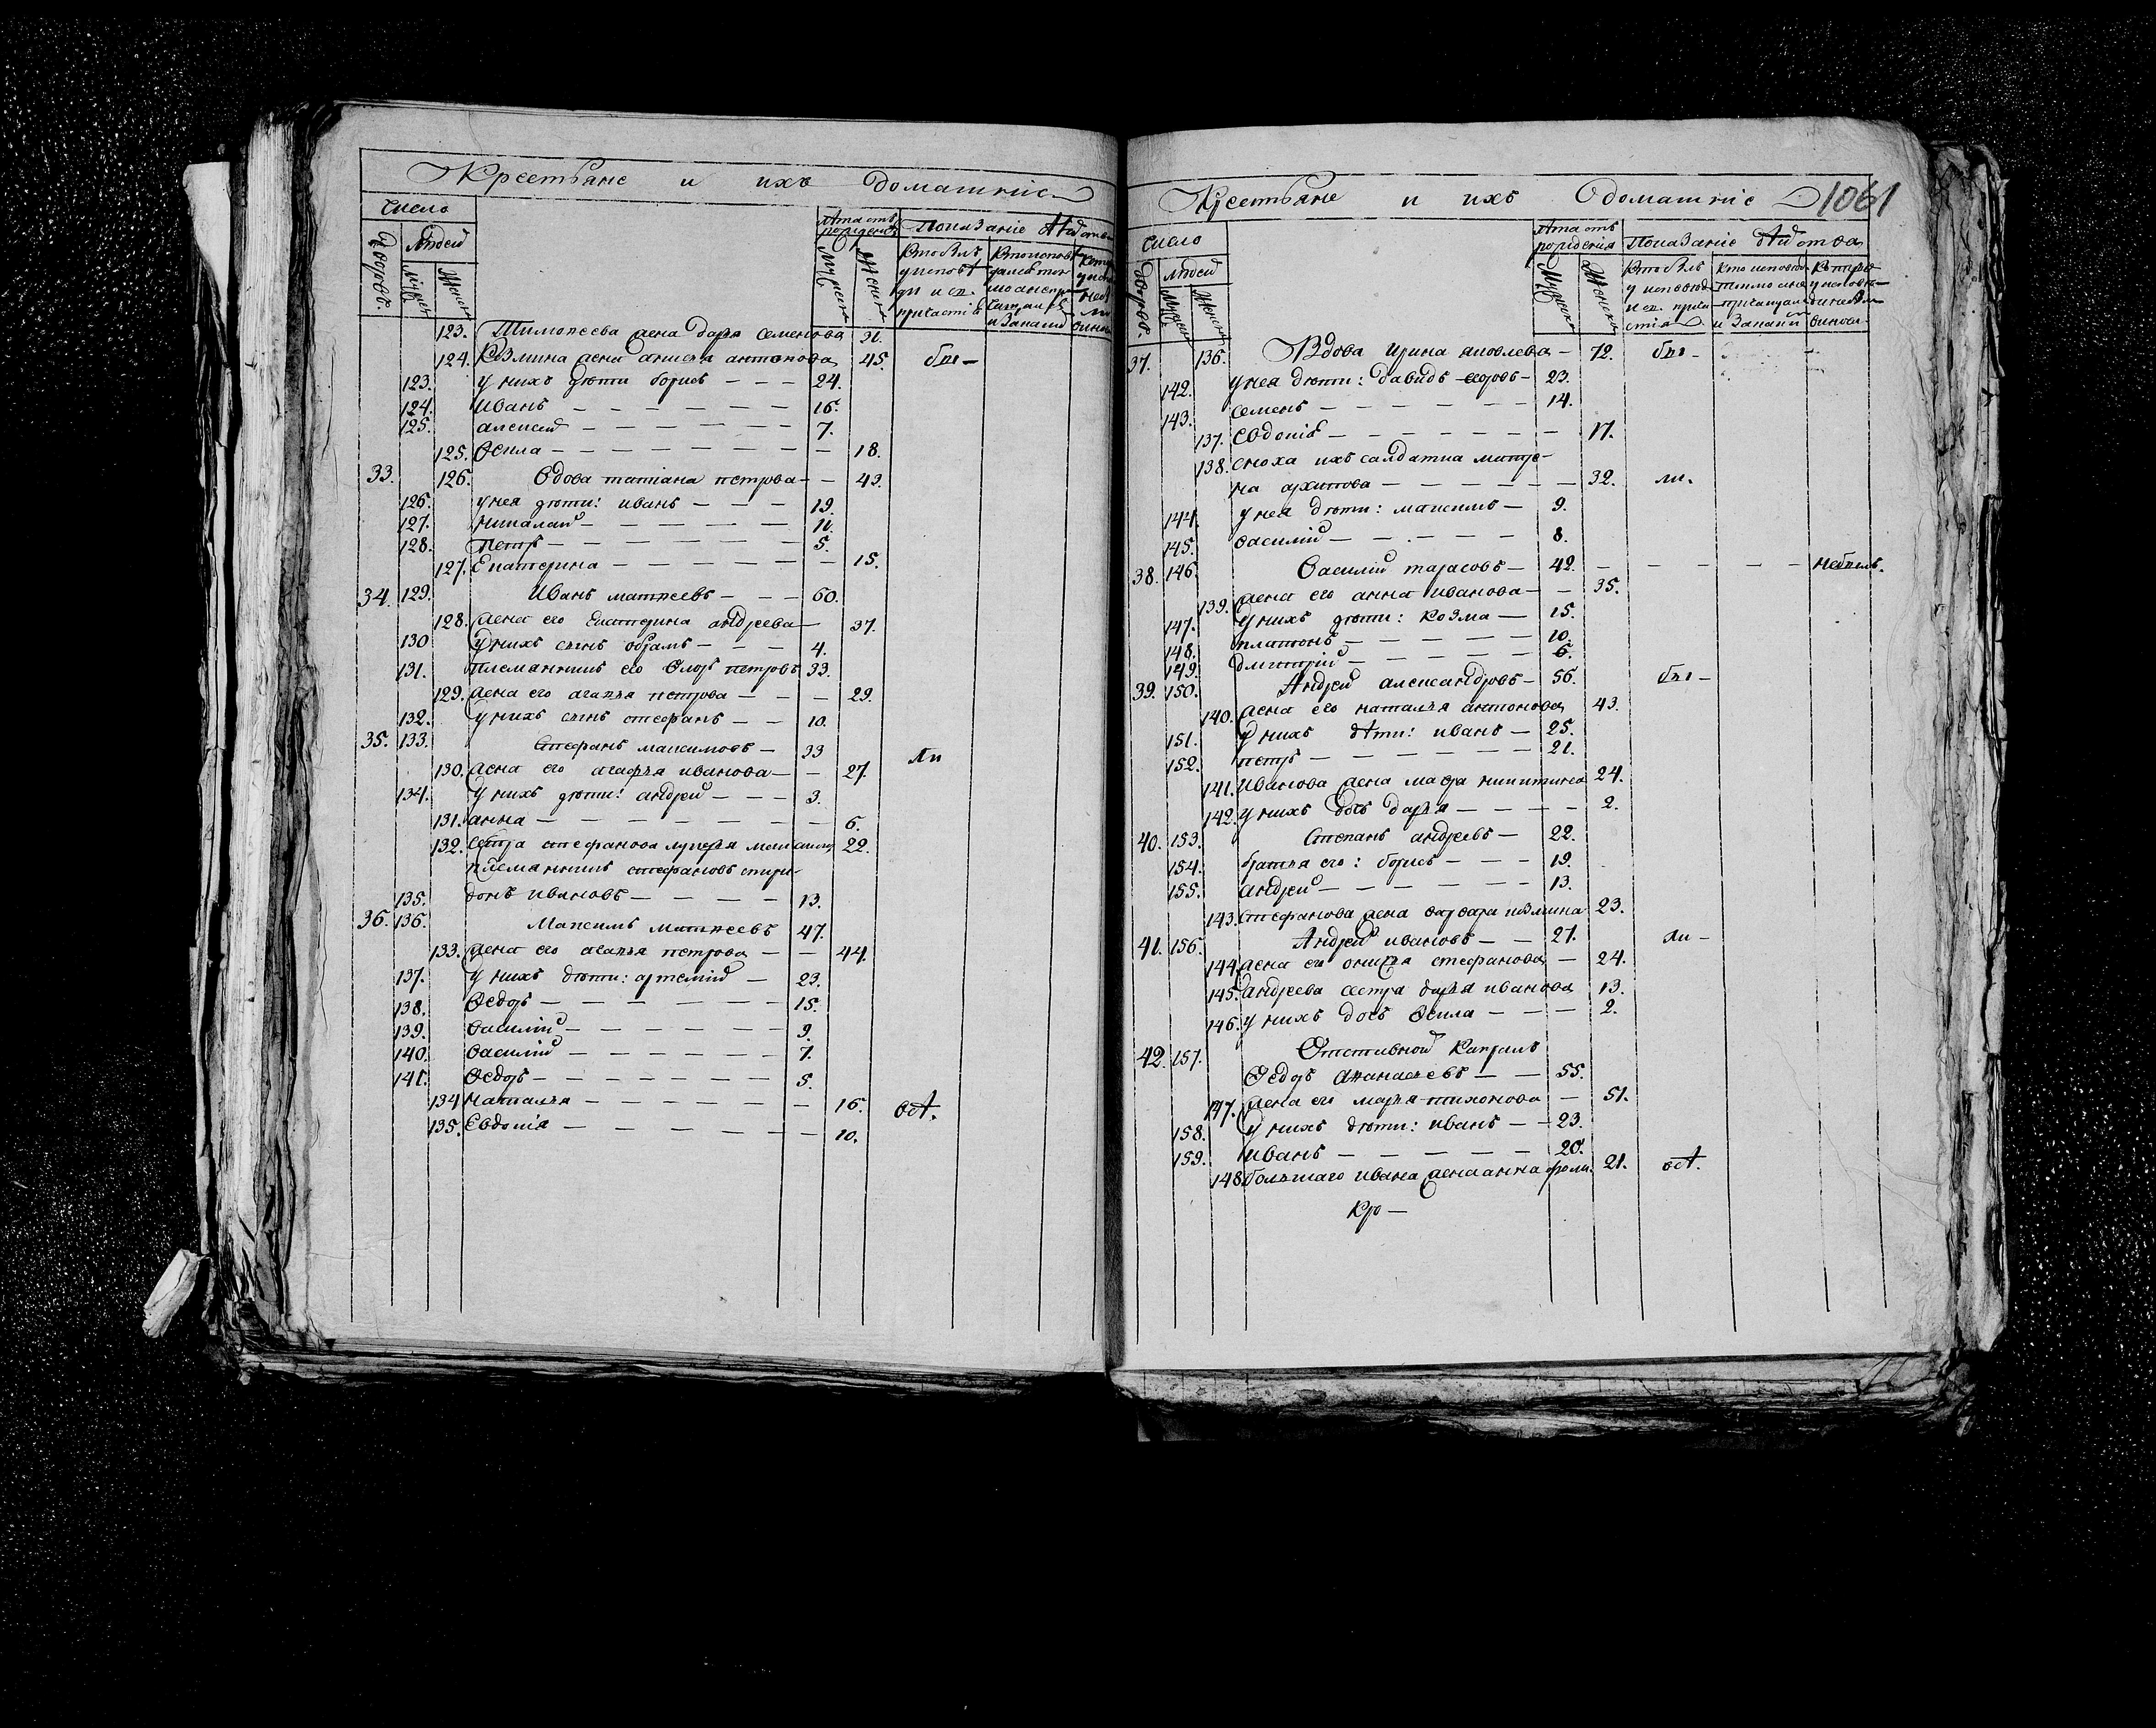 Крестьяне и ихъ домашніе
число
дворовъ. людей
мужеск женск
лѣта отъ рожденія
мужеска женска
показаніе дѣйств
кто былъ у исповѣди и св. причастіѣ
123. Тимоѳеева жена дарья семенова 31.
124. Козмина жена анисья антонова 45. бы-
123. у нихъ дѣти борисъ — — — 24.
124. иванъ — — — — — — 16.
125. алексей — — — — — — 7.
125. Ѳекла — — — — — — — — 18.
33. 126. вдова татиана петрова — — 43.
126. у нея дѣти: иванъ — — — 19.
127. николай — — — — — 11.
128. петръ — — — — — — — 5.
127. Екатерина — — — — — — 15.
34. 129. Иванъ матѳеевъ — — — 60.
128. жена его Екатерина андреева — 37.
130 у нихъ сынъ абрамъ — — — 4.
131. племянникъ его Флоръ петровъ 33.
129. жена его агапья петрова — — — 29.
132. у нихъ сынъ стефанъ — — 10.
35. 133. Стефанъ максимовъ — 33 ли
130. жена его агафья иванова — — 27.
134. у нихъ дѣти: андрей — — — 3.
131. анна — — — — — — — — 6.
132. сестра стефанова лукерья максимо 22.
племянникъ стефановъ спири-
135. донъ ивановъ — — — — — 13.
36. 136. Максимъ матѳеевъ 47.
133. жена его агапья петрова — — 44.
137. у нихъ дѣти: артемій — 23.
138. Ѳедоръ — — — — — — 15.
139. василій — — — — — — 9.
140. василій — — — — — — 7.
141. Ѳедоръ — — — — — — — 5.
134 наталья — — — — — — 16. всѣ.
135. Евдокія — — — — — — — 10.
Крестьяне и ихъ домашніе 1061
число
дворовъ. людей
мужеск женск
лѣта отъ рожденія
мужеска женска
показаніе дѣйства
кто былъ у исповѣд и св. прича стія
37. 136. Вдова ирина яковлева — 72. бы-
142. у нея дѣти: давидъ 23.
143. семенъ — — — — — — — 14.
137. Евдокія — — — — — — — 17.
138. сноха ихъ салдатка матре-
на архипова — — — — — — 32. ли.
144. у нея дѣти: максимъ — 9.
145. василій — — — — — — 8.
38. 146. василій тарасовъ — 42. — — — — — небылъ.
139. жена его анна иванова — — 35.
147. у нихъ дѣти: козма — 15.
148. платонъ — — — — — — 10.
149. дмитрій — — — — — — 6.
39. 150. Андрей александровъ — 56. бы-
140. жена его наталья антонова 43.
151. у нихъ дѣти: иванъ — 25.
152. петръ — — — — — — 21.
141. Иванова жена мавра никитина 24.
142. у нихъ дочь дарья — — — — 2.
40. 153. Степанъ андреевъ — 22.
154. братья его: борисъ — — — 19.
155. андрей — — — — — — 13.
143. стефанова жена варвара козмина 23.
41. 156. Андрей ивановъ — — 21. ли-
144. жена его анисья стефанова — 24.
145. андреева сестра дарья иванова 13.
146. у нихъ дочь Ѳекла — — — 2.
42. 157. Отставной капралъ
Ѳедоръ Аѳанасьевъ — — 55.
147. жена его марья тихонова — 51.
158. у нихъ дѣти: иванъ — — 23.
159. иванъ — — — — — — 20.
148. большаго ивана жена анна фроло. 21. всѣ.
кре—